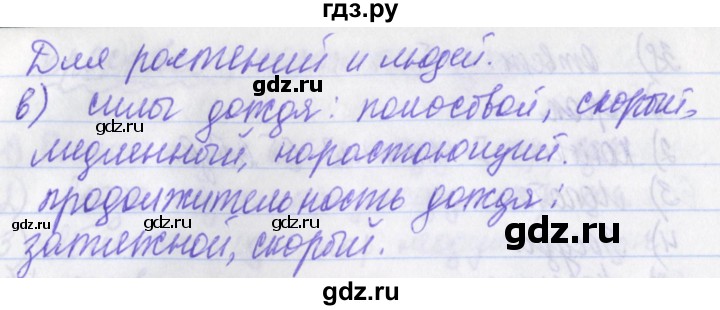 гдз.ру
Для растений и людей.
в) силы дождя: полосовой, скорый,
медленный, нарастающий.
продолжительность дождя:
затяжной, скорый.
gdz.ru
gdz.ru
gdz.ru
gdz.ru
gdz.ru